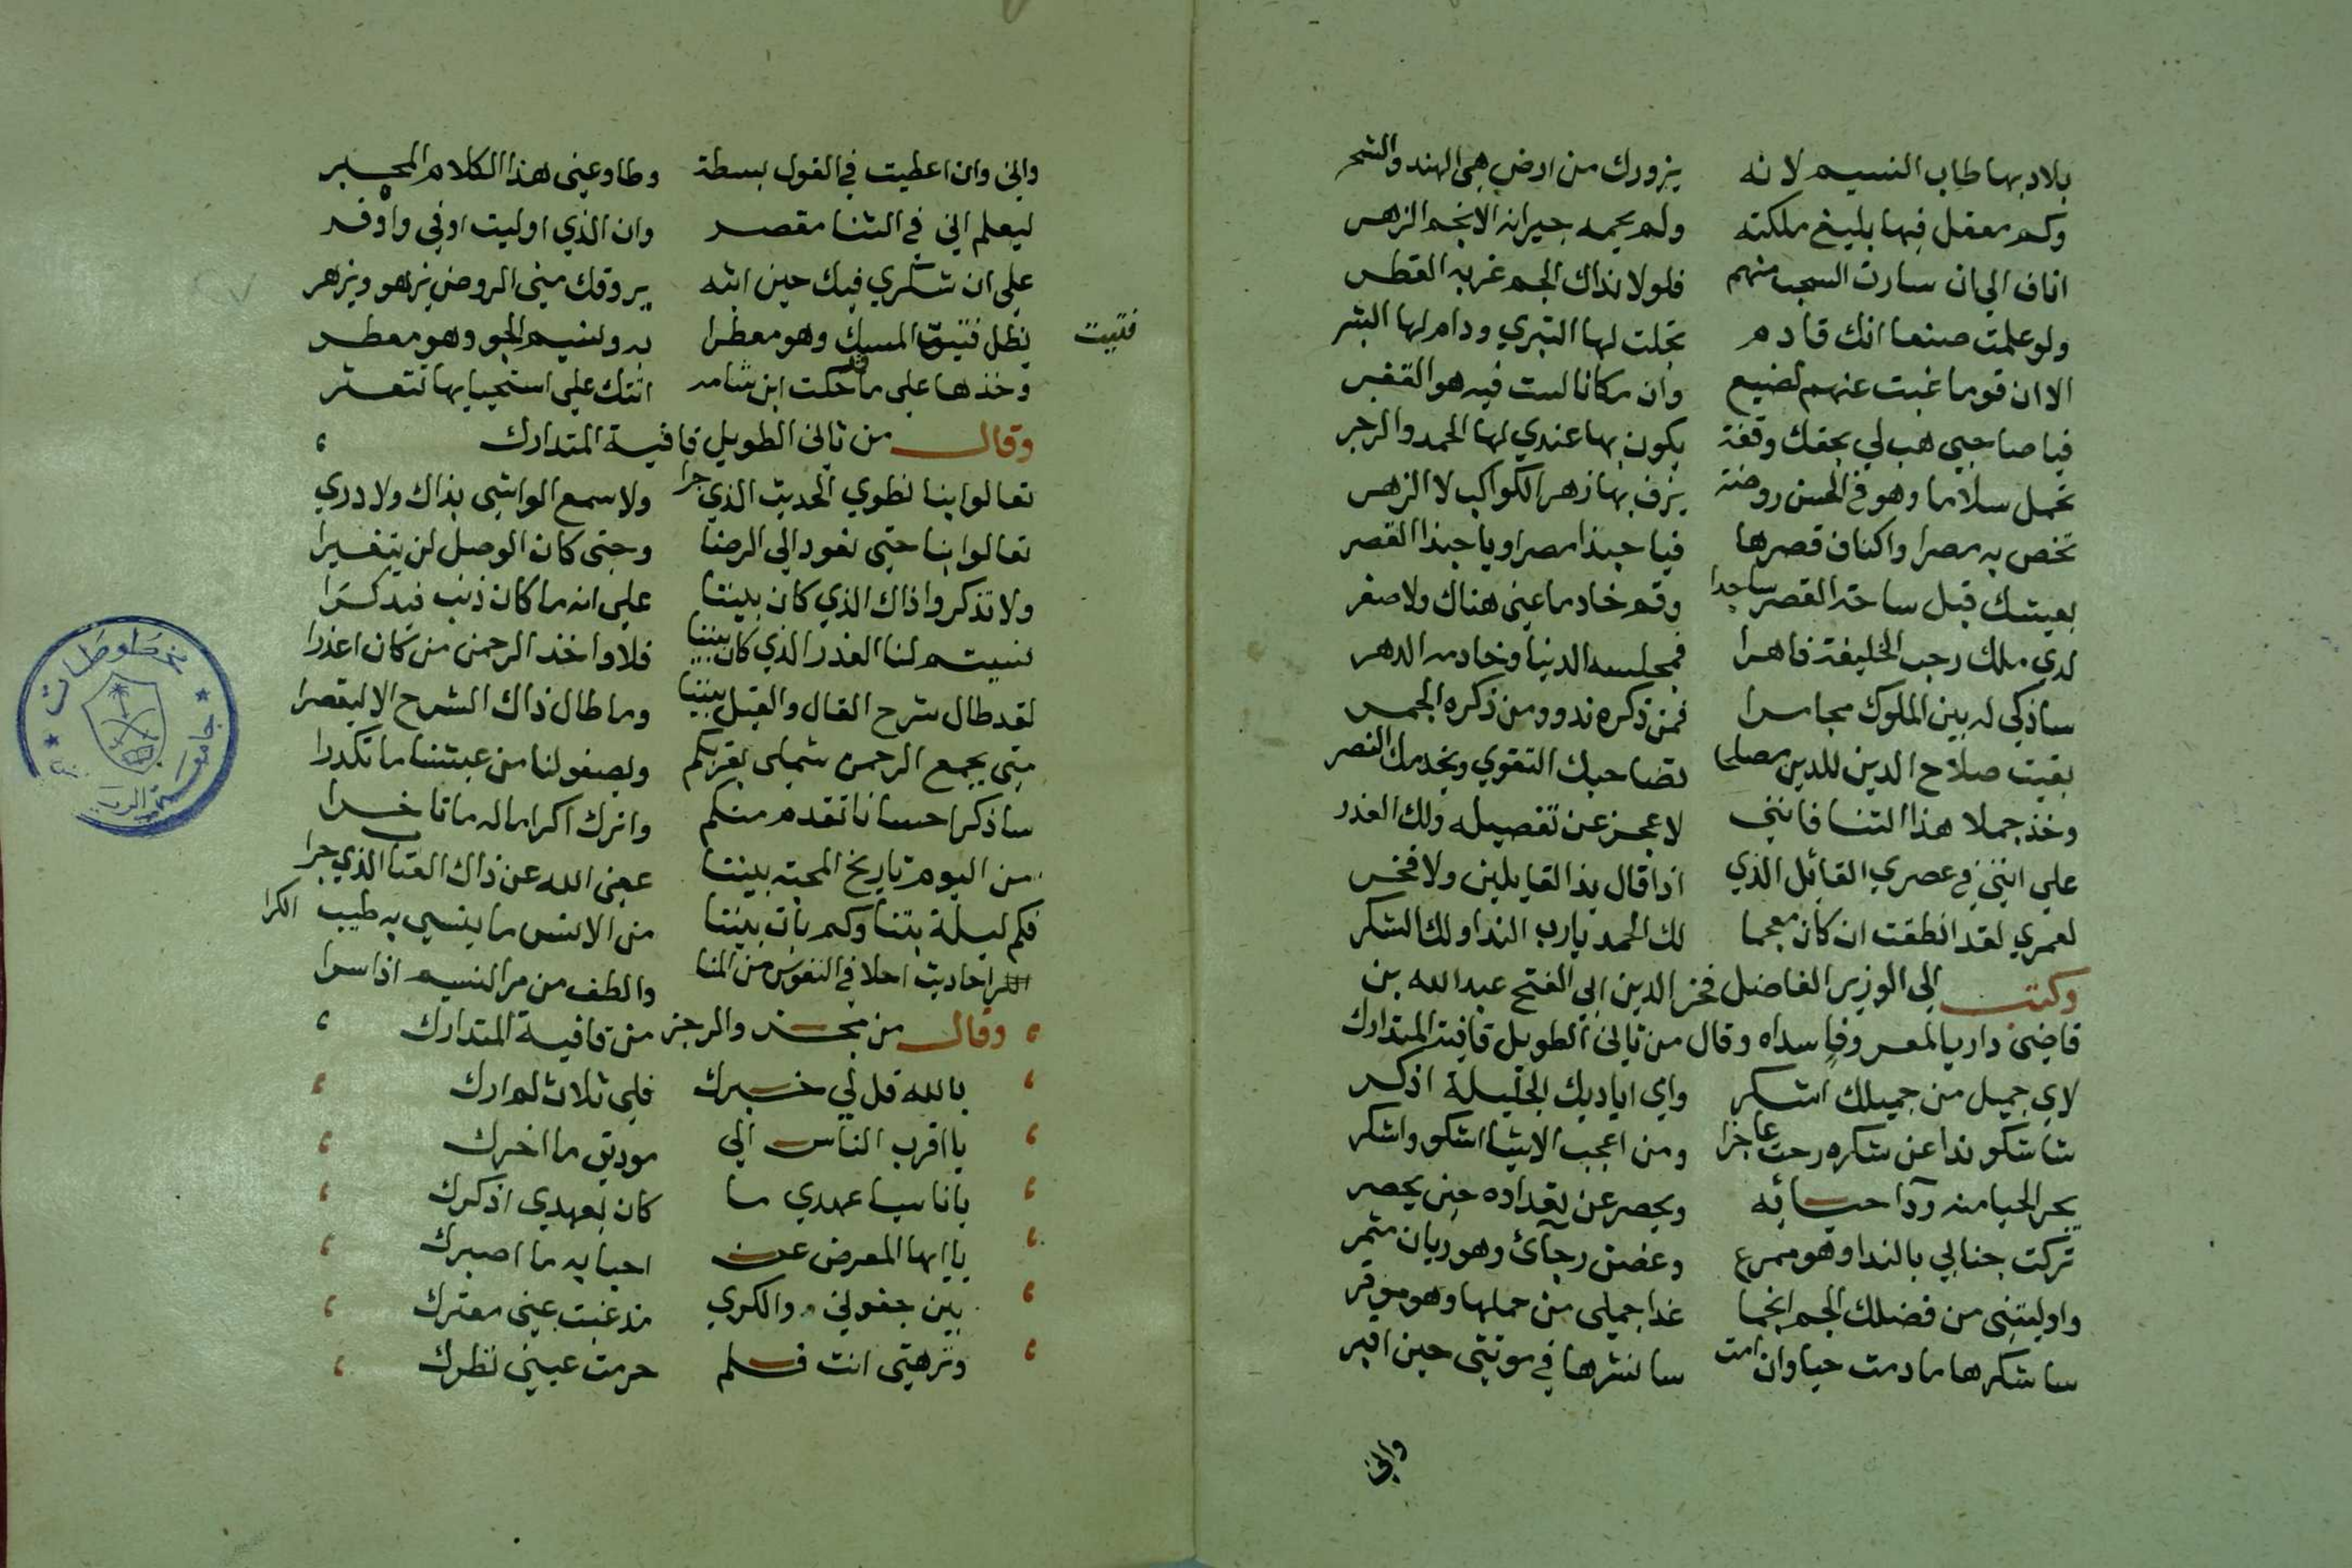 بلاد بها طاب النسيم لانه يزورك من ارض هى الهند والشحر
وكم معقل فيها بليغ ملكته ولم يحمه جيرانه الانجم الزهر
اناف الى ان سارت السحب منهم فلولا نداك الجم غربه القطر
ولو علمت صنعا انك قادم تحلت لها التبري ودام لها البشر
الا ان قوما غبت عنهم لضيع وان مكانا لست فيه هو القفر
فيا صاحبي هب لي بحقك وقفة يكون بها عندي لها الحمد والاجر
تحمل سلاما وهو في الحسن روضة يزف بها زهر الكواكب لا الزهر
تخص به مصرا واكناف قصرها فيا حبذا مصرا ويا حبذا القصر
بعيشك قبل ساحة القصر ساجدا وقم خادما عني هناك ولا صفر
لدي ملك رحب الخليقة قاهرا فمجلسه الدنيا وخادمه الدهر
ساذكي له بين الملوك مجامرا فمن ذكره ند ومن ذكره الجمر
بقيت صلاح الدين للدين مصلحا تصاحبك التقوي ويخدمك النصر
وخذ جملا هذا الثنا فانني لاعجز عن تفصيله ولك العذر
على انني في عصري القائل الذي اذا قال بذ القايلين ولا فخر
لعمري لقد انطقت ان كان معجما لك الحمد يا رب الندا ولك الشكر
وكتب الى الوزير الفاضل فخر الدين ابي الفتح عبد الله بن
قاضي داريا لمعروف اسداه وقال من ثاني الطويل قافيته المتدارك
لاي جميل من جميلك اشكر واي اياديك الجليلة اذكر
ساشكو ندا عن شكره رحت عاجزا ومن اعجب الاشيا اشكو واشكر
يحر الحيا منه ردا حيائه ويحصر عن تعداده حين يحصر
تركت جنابي بالندا وهو ممرع وغصن رجآئ وهو ريان مثمر
واوليتني من فضلك الجم انجما غدا جملى من حملها وهو موقر
ساشكرها ما دمت حيا وان امت سانشرها في موتتي حين اقبر
واني
واني وان اعطيت في القول بسطة وطاوعني هذا الكلام المحبر
ليعلم اني في الثنا مقصر وان الذي اوليت اوفي واوفر
على ان شكري فيك حين ابثه يروقك مني الروض يزهو ويزهر
يظل فتيق المسك وهو معطرا به ونسيم الجو وهو معطر
فتيت
وخذها على ما حكت ابن شامه اتتك على استحيا بها تتعثر
وقال من ثاني الطويل قافية المتدارك
تعالوا بنا نطوي الحديث الذي جرا ولا سمع الواشي بذاك ولا دري
تعالوا بنا حتى نعود الى الرضا وحتى كان الوصل لن يتغيرا
ولا تذكروا ذاك الذي كان بيننا على انه ما كان ذنب فيذكرا
نسيتم لنا الغدر الذي كان بيننا فلا واخذ الرحمن من كان اغدرا
لقد طال شرح القال والقيل بيننا وما طال ذاك الشرح الا ليقصرا
متى يجمع الرحمن شملى بقربكم ويصفو لنا من عيشنا ما تكدرا
ساذكر احسانا تقدم منكم واترك اكراما له ما تاخرا
من اليوم تاريخ المحبة بيننا عفى الله عن ذاك العتا الذي جرا
فكم ليلة بتنا وكم بات بيننا من الانس ما ينسي به طيب الكرا
احاديث احلا في النفوس من المنا والطف من مر النسيم اذا سرا
وقال من مجزو والرجز من قافية المتدارك
بالله قل لي خبرك فلي ثلاث لم ارك
يا اقرب الناس الي مودتي ما اخرك
يا ناسيا عهدي ما كان بعهدي اذكرك
يا ايها المعرض عن احبابه ما اصبرك
بين جفوني والكري مذ غبت عيني معترك
ونزهتي انت فلم حرمت عيني نظرك